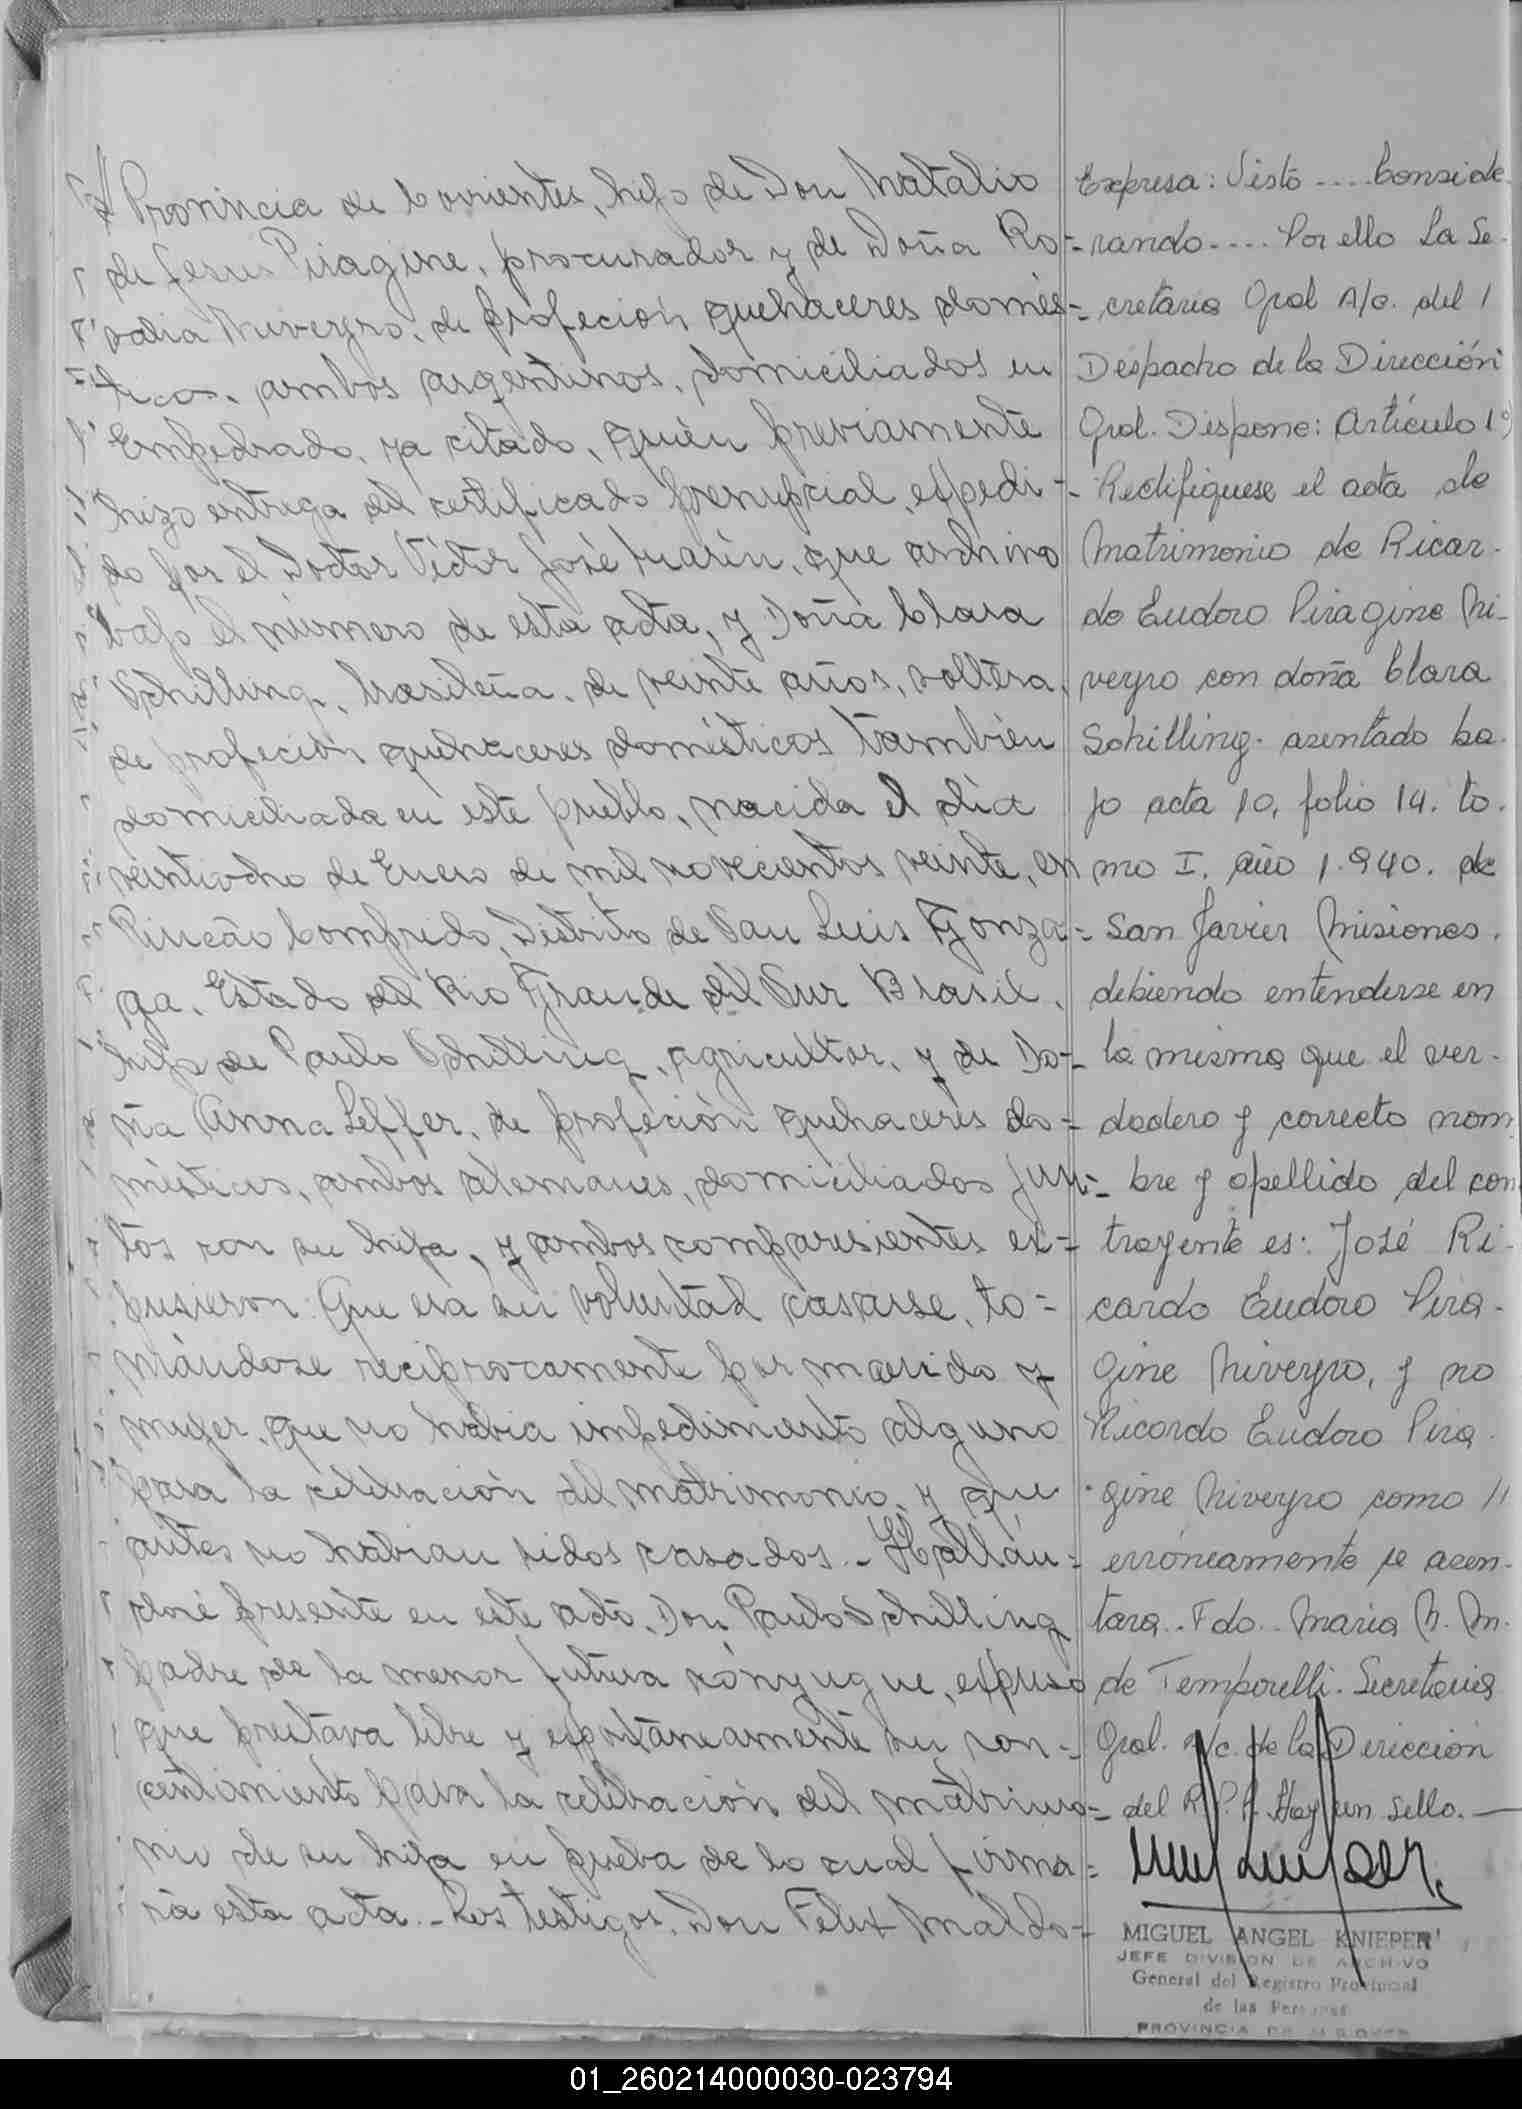 Provincia de Corrientes, hijo de Don Natalio
de Jesus Piragine, procurador y de Doña Ro-
salia Niveyro, de profeción quehaceres domés-
ticos, ambos argentinos, domiciliados en
Empedrado, ya citado, quién previamente
hizo entrega del certificado prenupcial, expedi-
do por el Doctor Víctor José Marín, que archivo
bajo el número de esta acta, y Doña Clara
Schilling, brasileña, de veinte años, soltera,
de profeción quehaceres domésticos también
domiciliada en este pueblo, nacida el día
veintiocho de Enero de mil novecientos veinte, en
Rincão Comprido, Distrito de San Luis Gonza-
ga, Estado del Rio Grande del Sur Brasil,
hija de Paulo Schilling, agricultor, y de Do-
ña Anna Leffer, de profeción quehaceres do-
mésticos, ambos alemanes, domiciliados jun-
tos con su hija, y ambos comparesientes ex-
pusieron: Que era su voluntad casarse, to-
mándose reciprocamente por marido y
mujer, que no habia impedimento alguno
para la celebración del matrimonio, y que
antes no habian sidos casados.- Hallán-
dose presente en este acto, Don Paulo Schilling
padre de la menor futura cónyugue, expuso
que prestava libre y espontáneamente su con-
centimiento para la celebración del matrimo-
nio de su hija en prueba de lo cual firma-
rá esta acta.- Los testigos, Don Felix Maldo-
Expresa: Visto .... Conside-
rando .... Por ello La Se-
cretaria Gral A/c. del /
Despacho de la Dirección
Gral. Dispone: Artículo 1º)
Rectifiquese el acta de
Matrimonio de Ricar-
do Eudoro Piragine Ni-
veyro con doña Clara
Schilling. asentado ba-
jo acta 10, folio 14. to-
mo I. año 1.940. de
San Javier Misiones,
debiendo entenderse en
la misma que el ver-
dadero y correcto nom-
bre y apellido del con
trayente es: José Ri-
cardo Eudoro Pira-
gine Niveyro, y no
Ricardo Eudoro Pira-
gine Niveyro como //
erróneamente se asen-
tara.. Fdo.. Maria N. M.
de Temporelli. Secretaria
Gral. A/c. de la Dirección
del R.P.P. Hay un sello. —
MIGUEL ANGEL KNIEPER
JEFE DIVISION DE ARCHIVO
General del Registro Provincial
de las Personas
PROVINCIA DE MISIONES
01_260214000030-023794